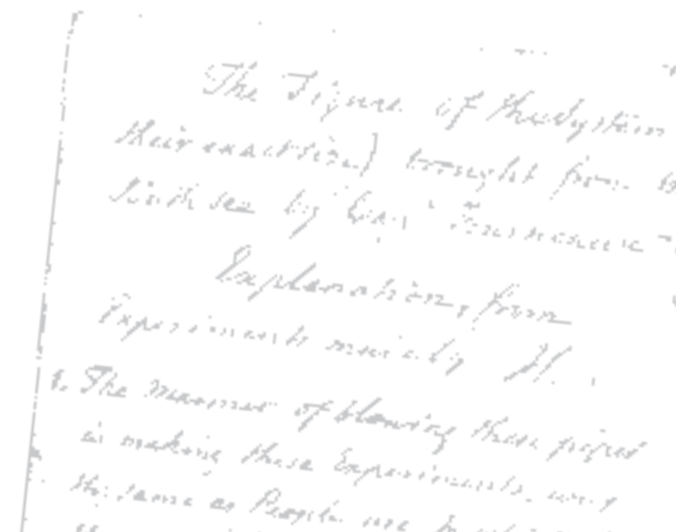 The Figure of the System
their exact size) brought from
South sea by Capt Fourneaux
Explanation, from
Experiments made by
1. The manner of blowing these pipes
in making these Experiments, was
the same as People use